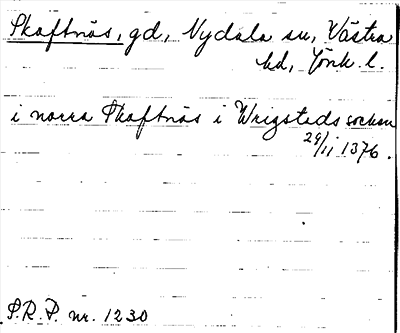 Skaftnäs, gd, Nydala sn, Västra
hd, Jönk. l.
i norra Skaftnäs i Wrigsteds socken
29/11 1376.
S.R.P. nr. 1230